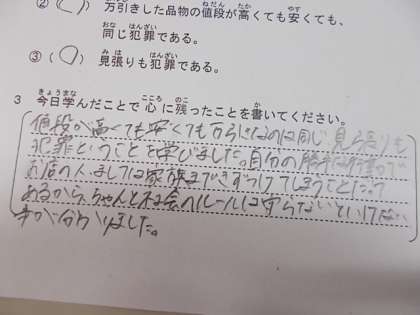 ②（〇）万引きした品物の値段が高くても安くても、
同じ犯罪である。
③（〇）見張りも犯罪である。
3 今日学んだことで心に残ったことを書いてください。
値段が高くても安くても 同じ 見張りも
犯罪ということを学びました。自分の勝手な行動で
お店の人、もしくは家族まできずつけてしまうことだって
あるから、ちゃんと社会のルールは守らないといけない
事が分かりました。